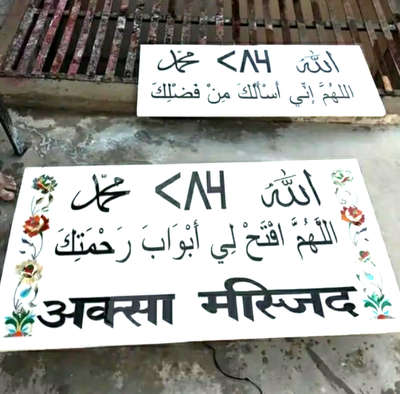 الله ۷۸۶ محمد
اللهُمَّ إِنِّي أَسْأَلُكَ مِنْ فَضْلِكَ
اللهُ ۷۸۶ محمد
اللَّهُمَّ افْتَحْ لِي أَبْوَابَ رَحْمَتِكَ
अक्सा मस्जिद